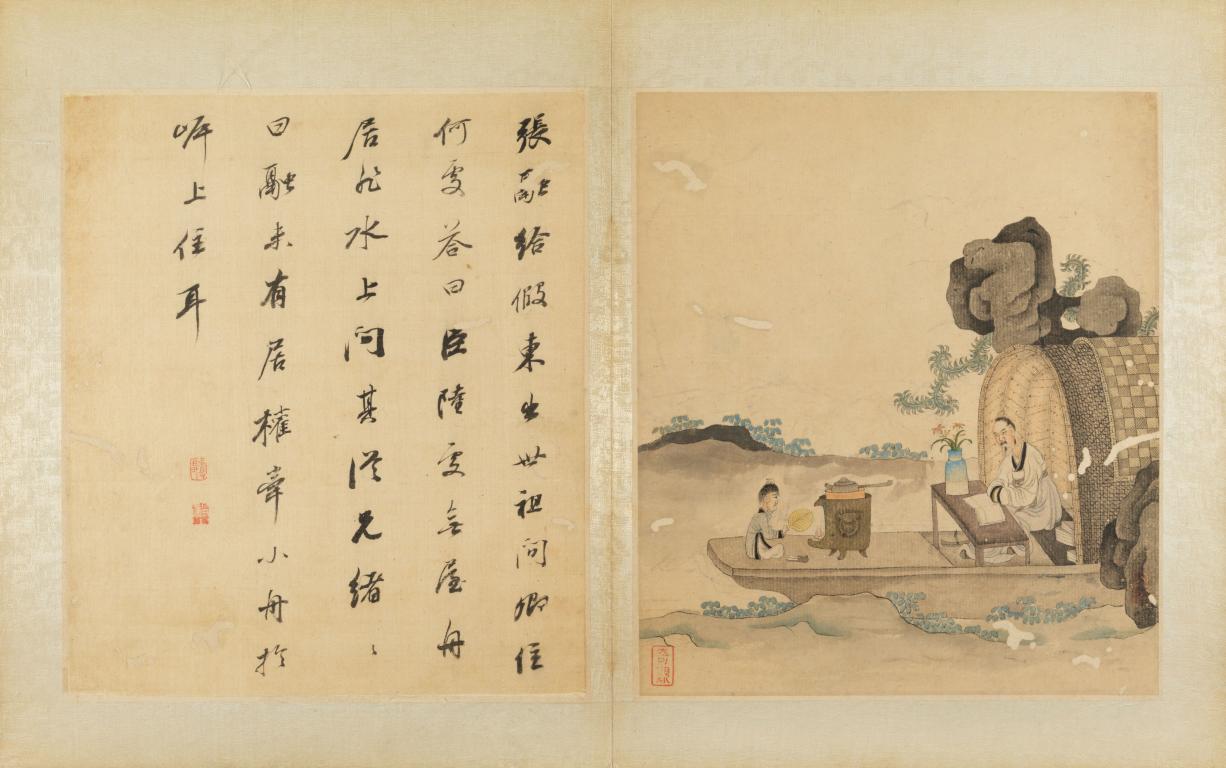 張融給假東出世祖問卿住
何處荅曰臣陸處無屋舟
居非水上問其從兄緒〻
曰融未有居權牽小舟於
岸上住耳